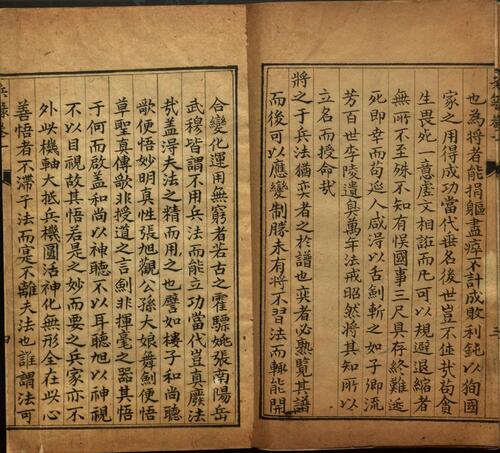 也為將者能捐軀盡瘁不計成敗利鈍以徇國
家之用得成功當代垂名後世豈不雖哉苟貪
生畏死一意虛文相誑而凡可以規避退縮者
無所不至殊不知有悞國事三尺具存終難逃
死即幸而苟延人咸得以舌劍斬之如子卿流
芳百世李陵遺臭萬年法戒昭然將其知所以
立名而授命哉
將之于兵法猶奕者之於譜也奕者必熟覽其譜
而後可以應變制勝未有將不習法而輙能開
合變化運用無窮者若古之霍驃姚張南陽岳
武穆皆謂不用兵法而能立功當代豈真廢法
哉蓋得夫法之精而用之也譬如樓子和尚聽
歌便悟妙明真性張旭觀公孫大娘舞劍便悟
草聖真傳歌非授道之言劍非揮毫之器其悟
于何而啟蓋和尚以神聽不以耳聽旭以神視
不以目視故其悟若是之妙而要之兵家亦不
外此機軸大抵兵機圓活神化無形全在此心
善悟者不滯于法而寔不離夫法也誰謂法可
兵錄卷一
四
三